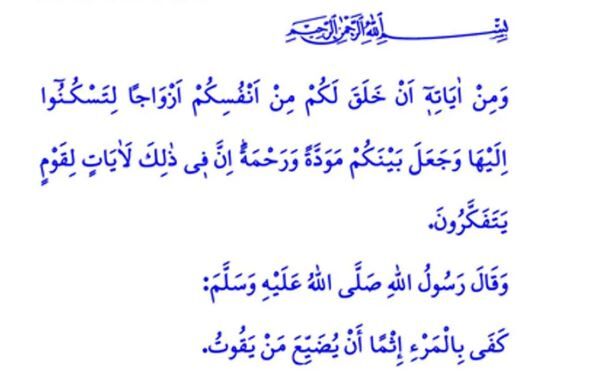 بِسْمِ اللهِ الرَّحْمٰنِ الرَّحِيمِ
وَمِنْ اٰيَاتِهٖٓ اَنْ خَلَقَ لَكُمْ مِنْ اَنْفُسِكُمْ اَزْوَاجًا لِتَسْكُنُٓوا
اِلَيْهَا وَجَعَلَ بَيْنَكُمْ مَوَدَّةً وَرَحْمَةًۜ اِنَّ فٖي ذٰلِكَ لَاٰيَاتٍ لِقَوْمٍ
يَتَفَكَّرُونَ.
وَقَالَ رَسُولُ اللهِ صَلَّى اللهُ عَلَيْهِ وَسَلَّمَ:
كَفَى بِالْمَرْءِ إِثْمًا أَنْ يُضَيِّعَ مَنْ يَقُوتُ.